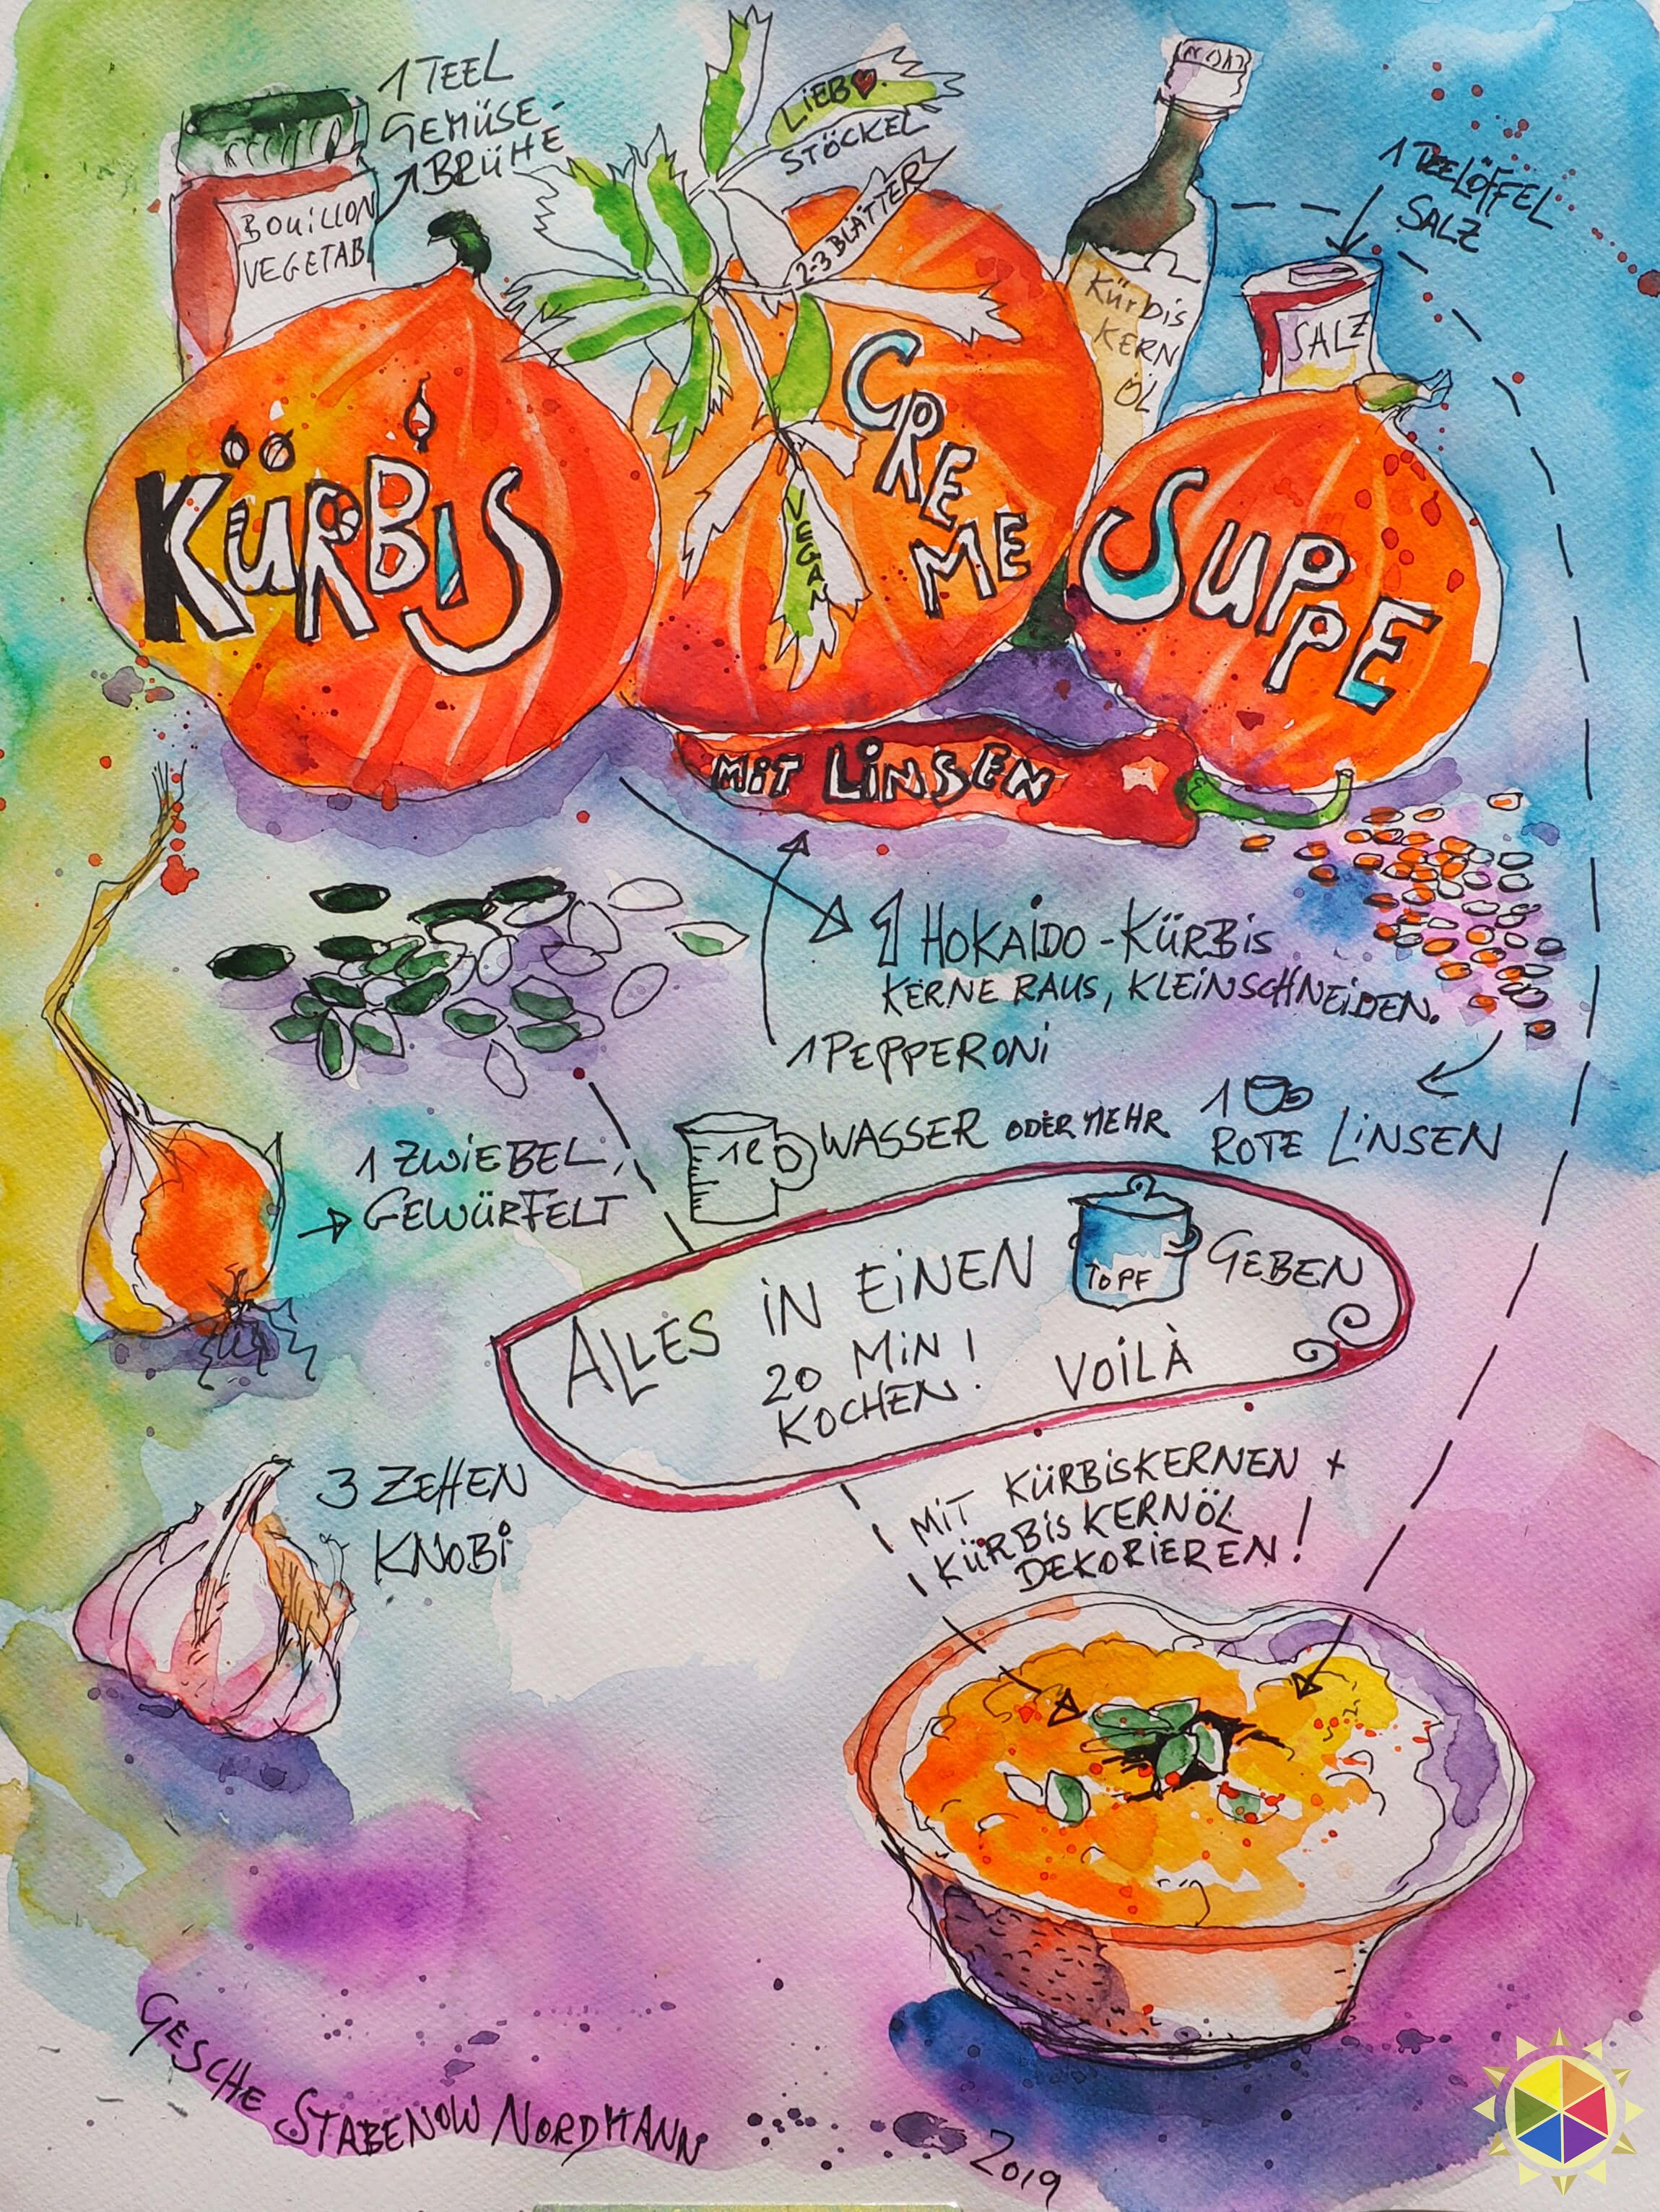 1 TEEL
GEMÜSE-
BRÜHE
BOUILLON
VEGETAB
LIEB
STÖCKEL
2-3 BLÄTTER
VEGAN
KÜRBIS
KERN
ÖL
1 TEELÖFFEL
SALZ
SALZ
KÜRBIS
CREME
SUPPE
MIT LINSEN
1 HOKAIDO-KÜRBIS
KERNE RAUS, KLEINSCHNEIDEN.
1 PEPPERONI
1
ROTE LINSEN
1 ZWIEBEL,
GEWÜRFELT
1L WASSER ODER MEHR
ALLES IN EINEN TOPF GEBEN
20 MIN!
KOCHEN. VOILÀ
3 ZEHEN
KNOBI
MIT KÜRBISKERNEN +
KÜRBISKERNÖL
DEKORIEREN!
GESCHE STABENOW NORDMANN
2019